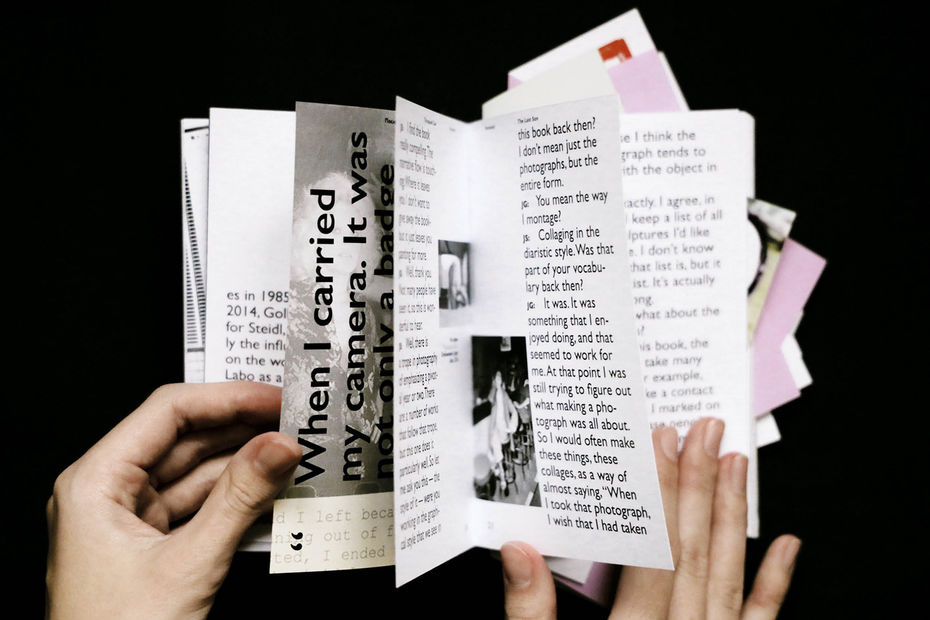 es in 1985
2014, Gol
for Steidl,
ly the infl
on the wo
Labo as a
“
When I carried
my camera. It was
not only a badge
d I left beca
ing out of f
ted, I ended
JS: I find the book
really compelling. The
narrative flow is touch-
ing. Where it leaves
you, I don't want to
give away the book—
but it just leaves you
wanting for more.
JG: Well, thank you.
Not many people have
seen it, so this is won-
derful to hear.
JS: Well, there is
a trope in photography
of emphasizing a pivot-
al year or two. There
are a number of works
that follow that trope,
but this one does it
particularly well. So let
me ask you this — the
style of it — were you
working in the graph-
ical style that we see in
The Last Son
this book back then?
I don't mean just the
photographs, but the
entire form.
JG: You mean the way
I montage?
JS: Collaging in the
diaristic style. Was that
part of your vocabu-
lary back then?
JG: It was. It was
something that I en-
joyed doing, and that
seemed to work for
me. At that point I was
still trying to figure out
what making a pho-
tograph was all about.
So I would often make
these things, these
collages, as a way of
almost saying, “When
I took that photograph,
I wish that I had taken
se I think the
graph tends to
with the object in
xactly. I agree, in
I keep a list of all
lptures I'd like
e. I don't know
that list is, but it
ist. It's actually
ong.
what about the
?
his book, the
take many
r example,
ke a contact
I marked on